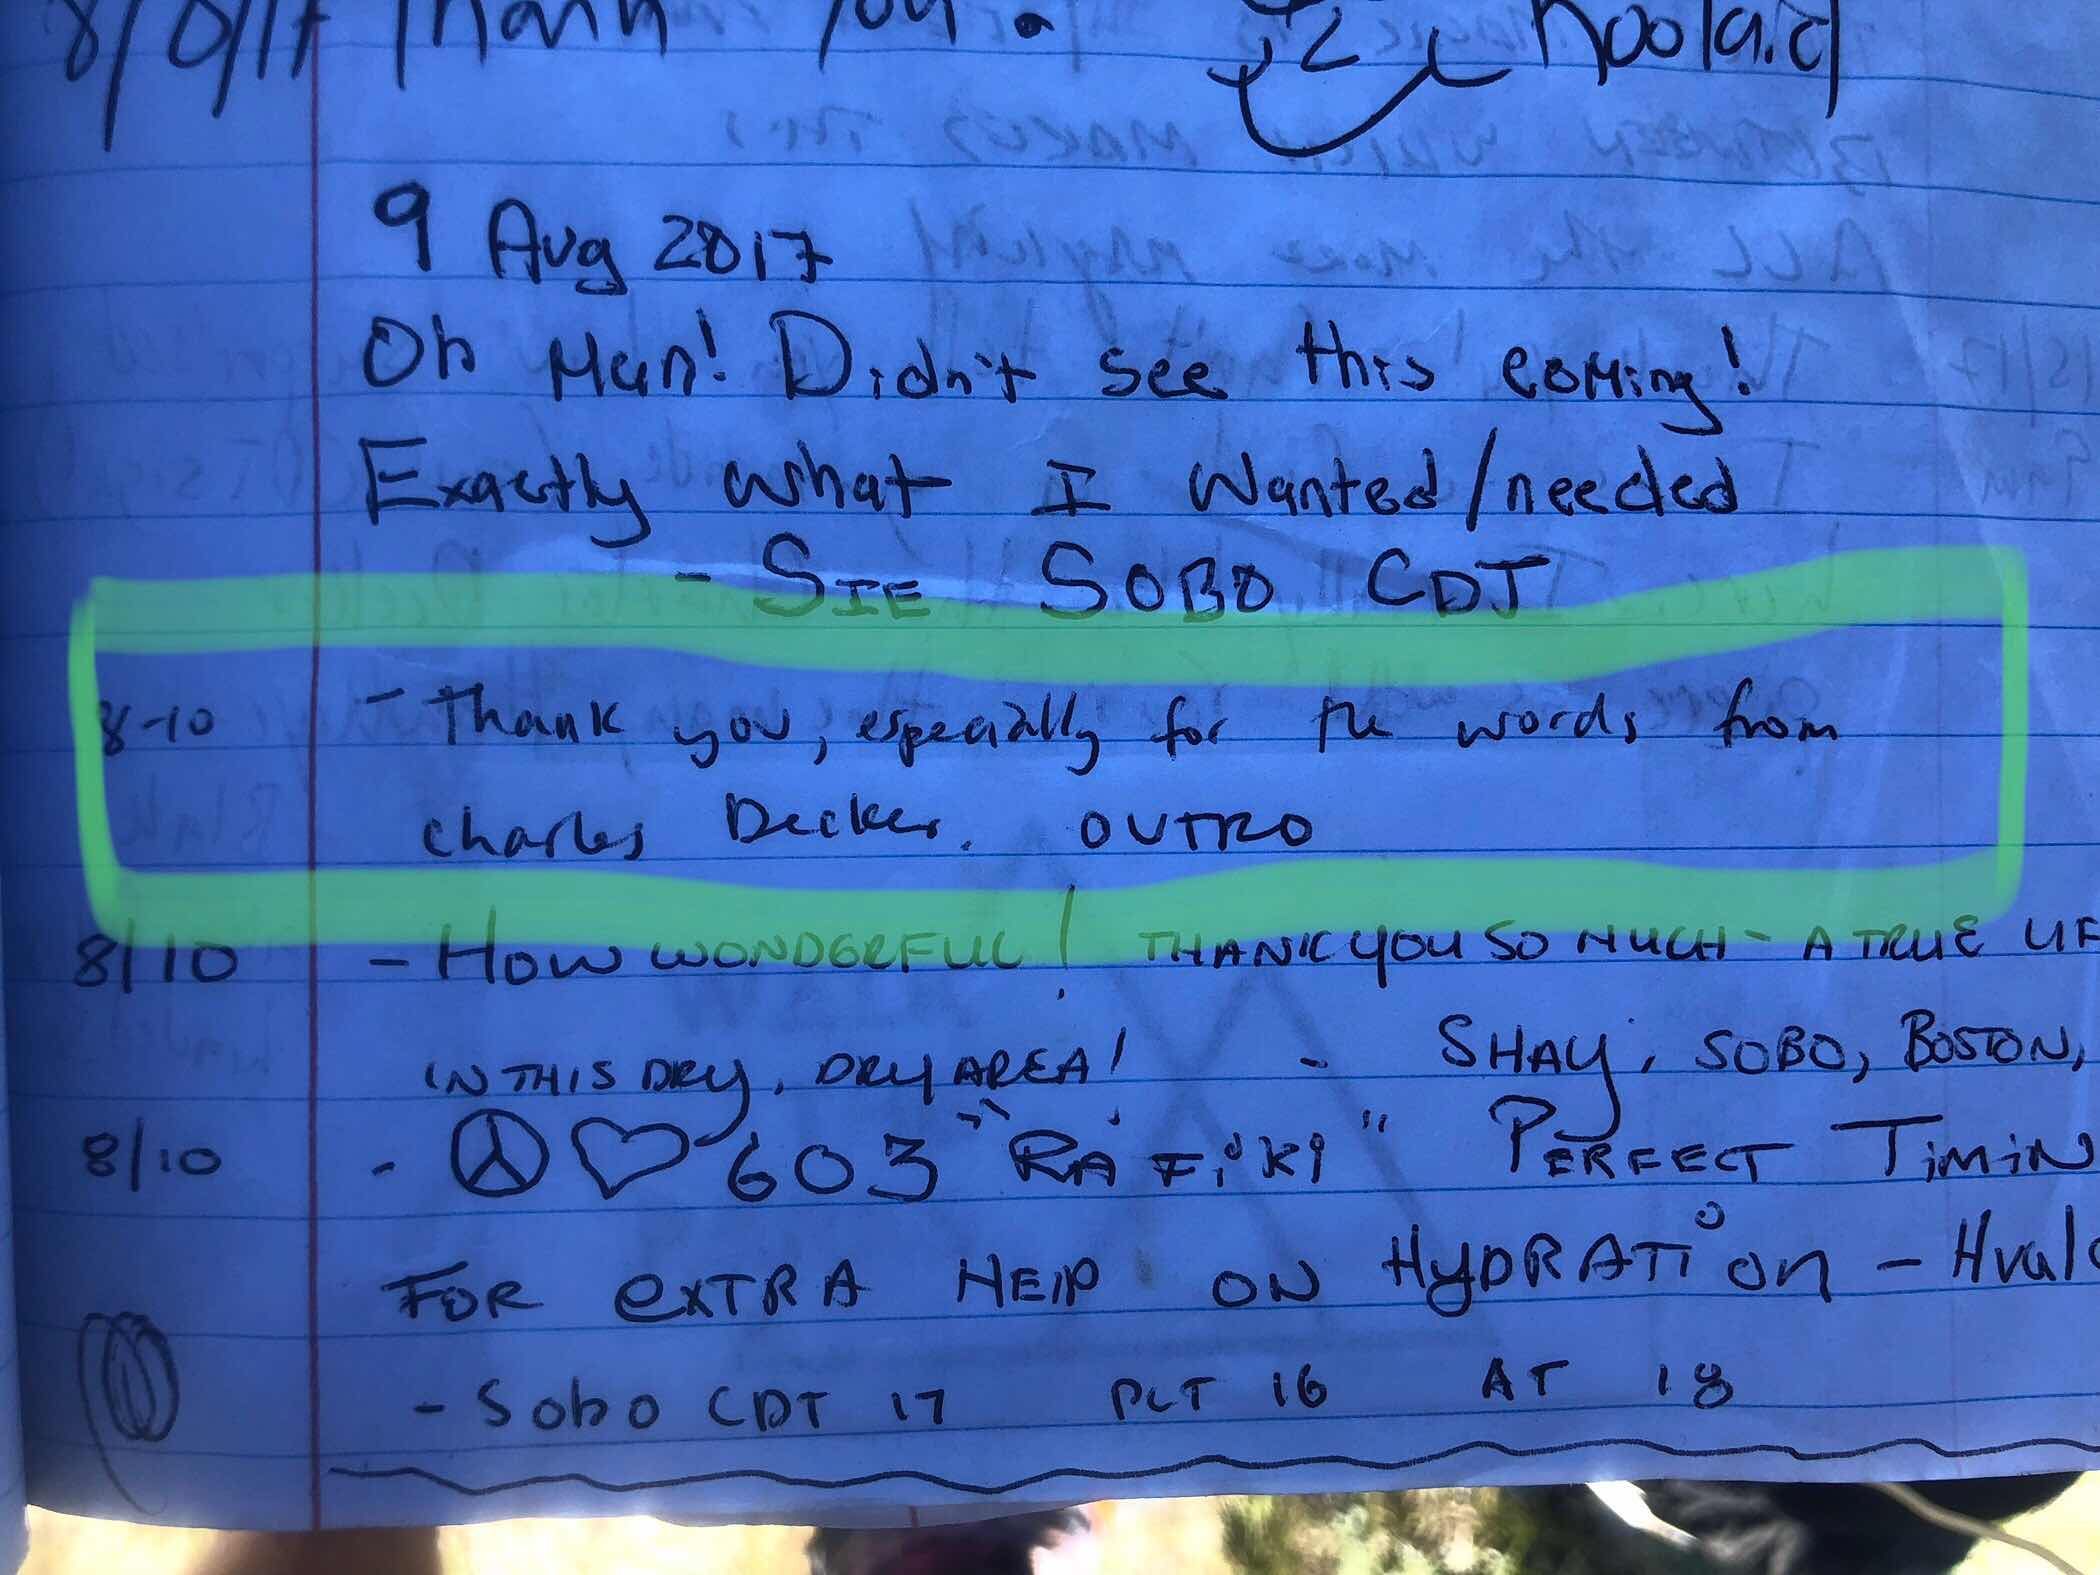 8/8/17 Thank You. Koolaid
9 Aug 2017
Oh Man! Didn't see this coming!
Exactly what I wanted/needed
- SIE SOBO CDT
8-10 - Thank you, especially for the words from
Charles Decker. OUTRO
8/10 - HOW WONDERFUL! THANK YOU SO MUCH - A TRUE LIF
IN THIS DRY, DRY AREA! - SHAY, SOBO, BOSTON,
8/10 - 603 "RAFiKi" PERFECT TiMiN
FOR eXTRA HElP ON HyDRATiON -
- Sobo CDT 17 PCT 16 AT 18